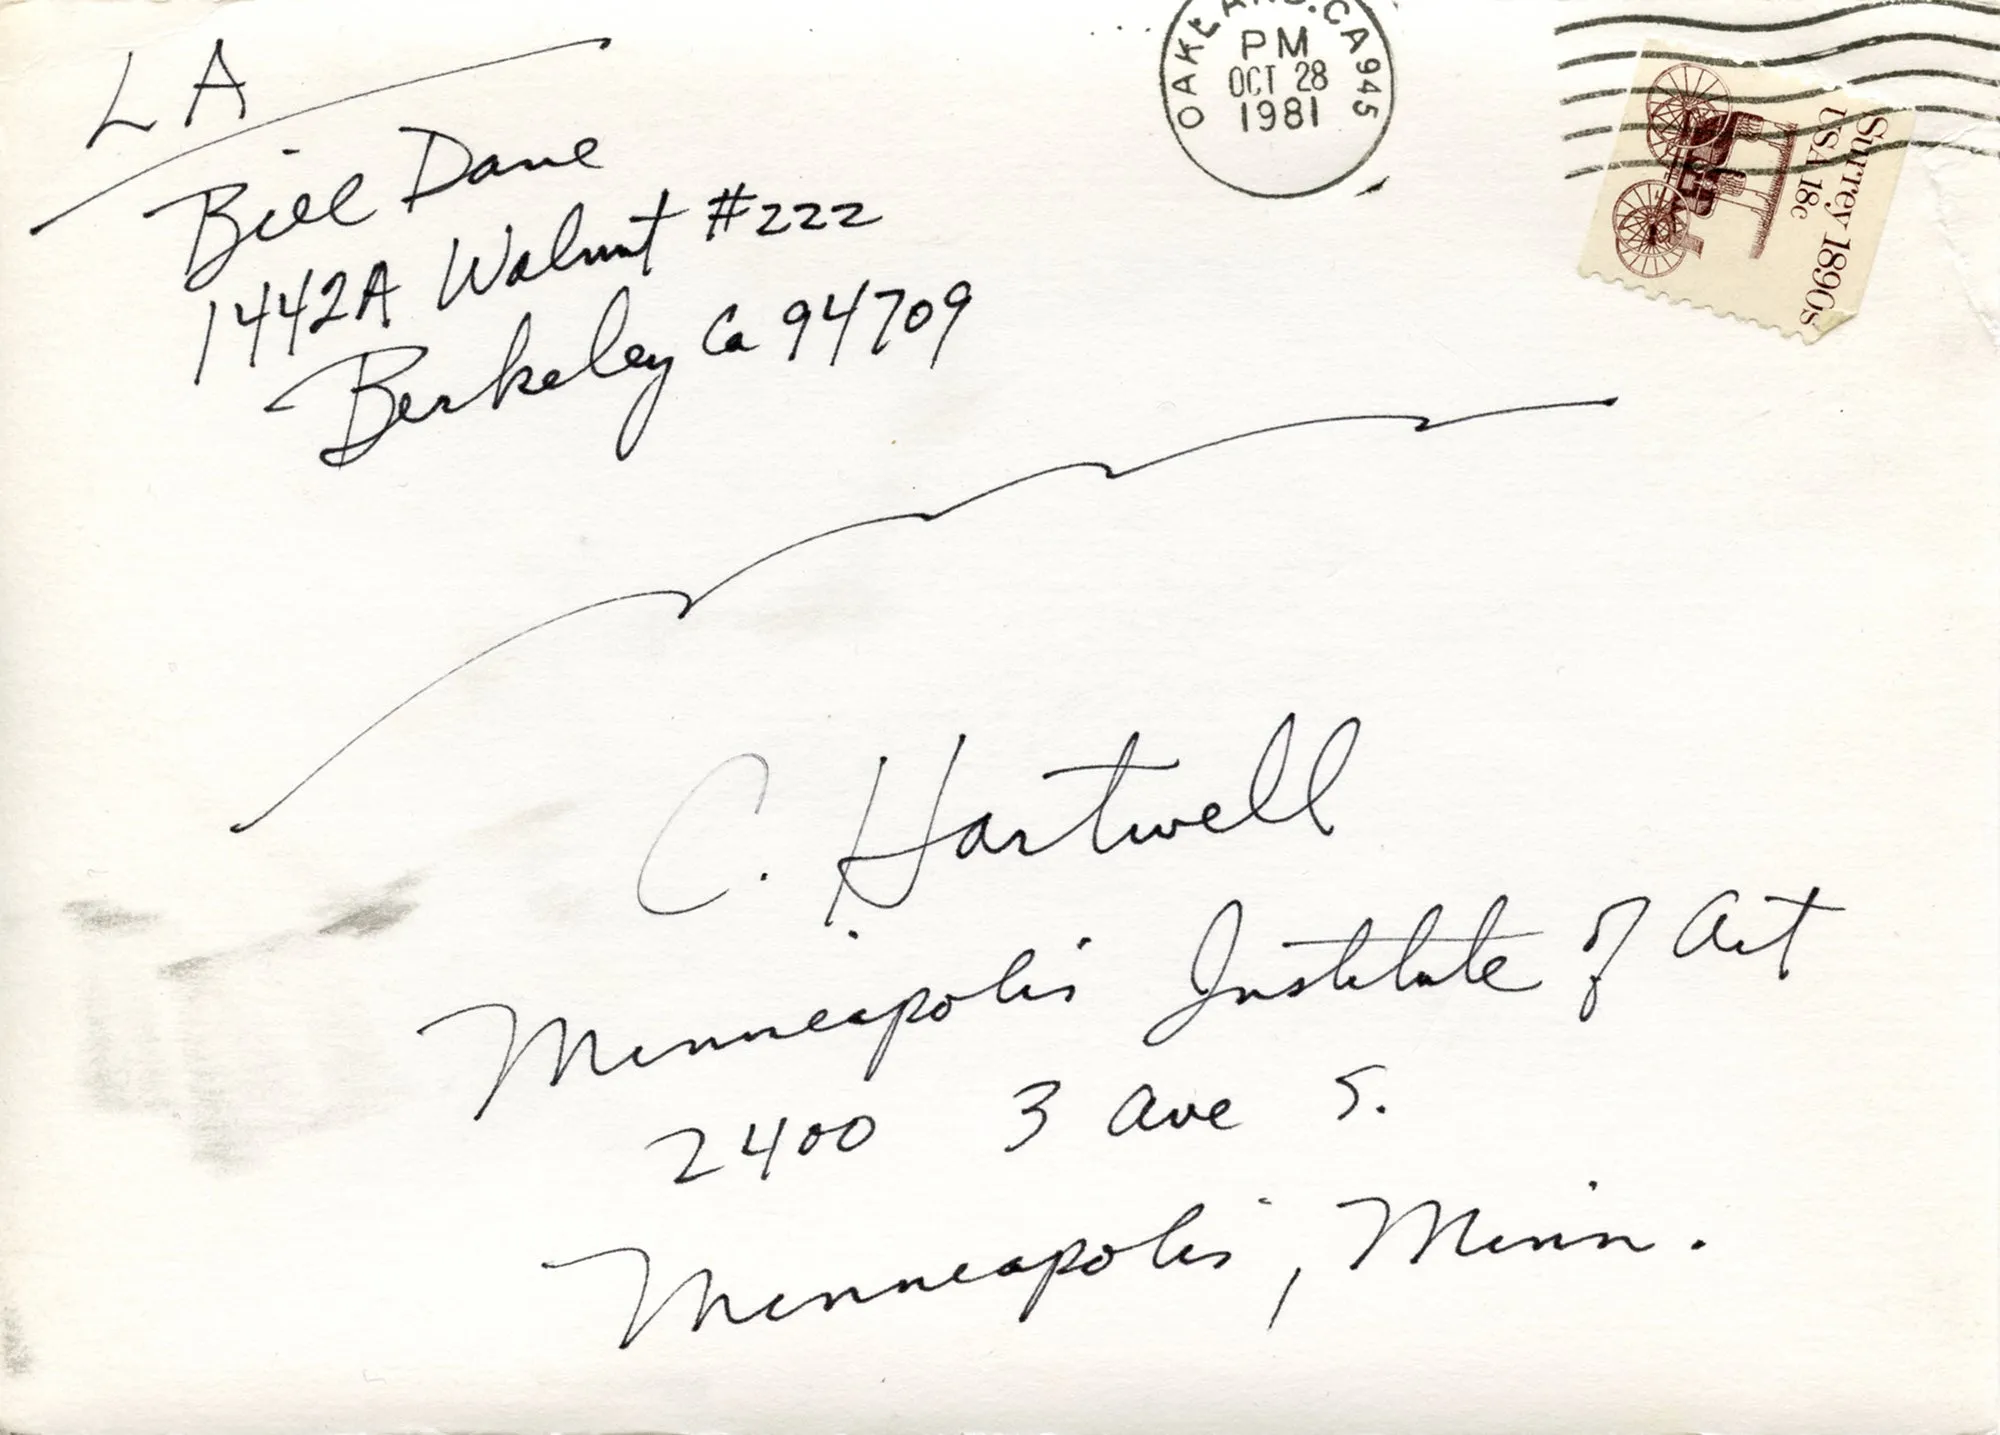 LA
Bill Dane
1442A Walnut #222
Berkeley Ca 94709
OAKLAND, CA 945
PM
OCT 28
1981
Surrey 1890s
USA 18c
C. Hartwell
Minneapolis Institute of Art
2400 3 Ave S.
Minneapolis, Minn.